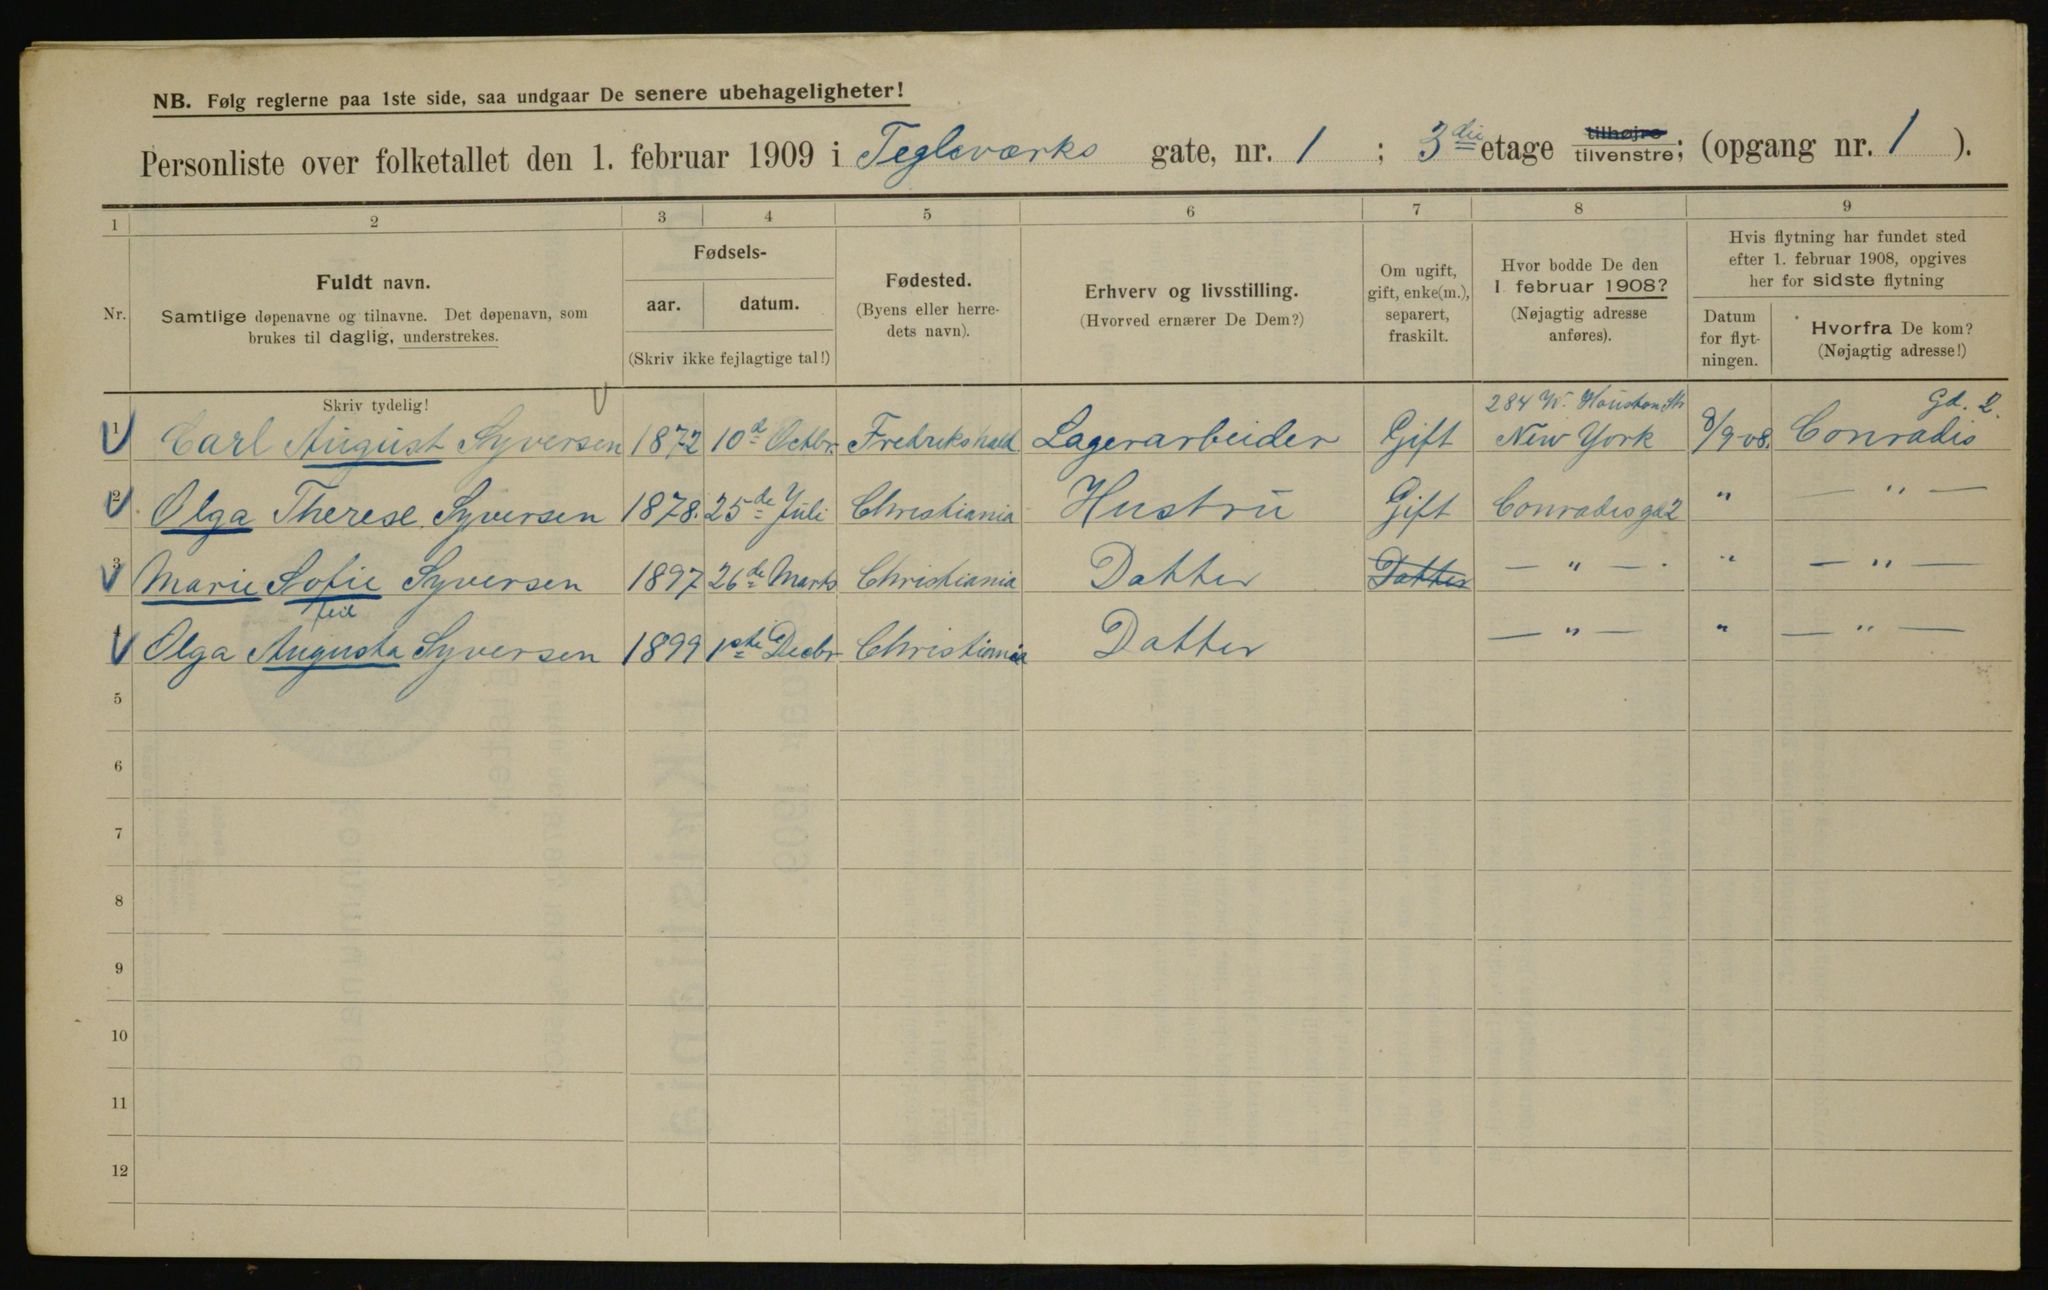 NB. Følg reglerne paa 1ste side, saa undgaar De senere ubehageligheter!
Personliste over folketallet den 1. februar 1909 i Teglværks gate, nr. 1 ; 3die etage tilhøjre tilvenstre; (opgang nr. 1 ).
1 2 3 4 5 6 7 8 9
Nr.
Fuldt navn.
Samtlige døpenavne og tilnavne. Det døpenavn, som
brukes til daglig, understrekes.
Skriv tydelig!
Fødsels-
aar. datum.
(Skriv ikke fejlagtige tal!)
Fødested.
(Byens eller herre-
dets navn).
Erhverv og livsstilling.
(Hvorved ernærer De Dem?)
Om ugift,
gift, enke(m.),
separert,
fraskilt.
Hvor bodde De den
1 februar 1908?
(Nøjagtig adresse
anføres).
Hvis flytning har fundet sted
efter 1. februar 1908, opgives
her for sidste flytning
Datum
for flyt-
ningen.
Hvorfra De kom?
(Nøjagtig adresse!)
284 W. Houston Str Gd. 2.
1 Carl August Syversen 1872 10d Octbr. Fredrikshald Lagerarbeider Gift New York 8/9 08. Conradis
2 Olga Therese Syversen 1878. 25de Juli Christiania Hustru Gift Conradis gd 2 " — " —
3 Marie Sofie Syversen 1897 26de Marts Christiania Datter Datter — " — " — " —
feil
4 Olga Augusta Syversen 1899 1ste Decbr Christiania Datter — " — " — " —
5
6
7
8
9
10
11
12